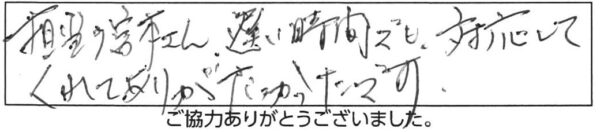 担当の宮本さん、遅い時間でも、対応して
くれてありがたかったです。
ご協力ありがとうございました。